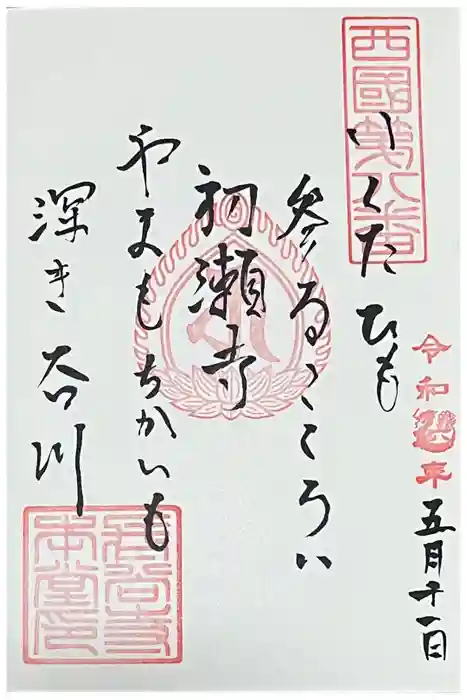 西國第八番
いくたひも
参るこころハ
初瀬寺
やまもちかいも
深き谷川
令和 年五月十一日
長谷寺
本堂印